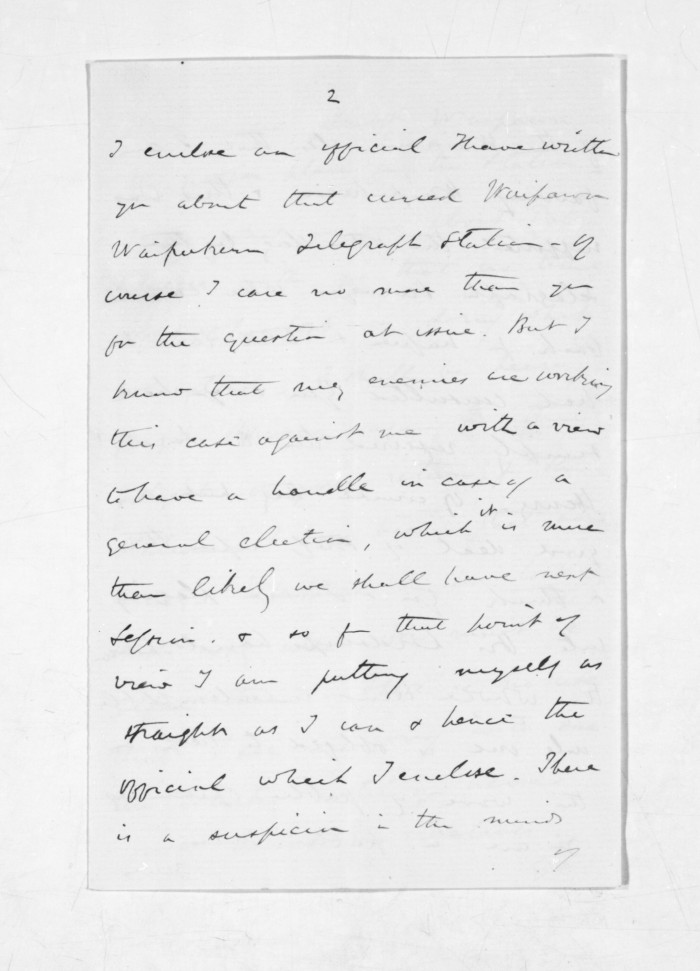 2
I enclose an official I have written
you about that cursed Waipawa
Waipukurau Telegraph Station - of
course I care no more than you
for the question at issue. But I
know that my enemies are working
this case against me with a view
to have a handle in case of a
general election, which it is more
than likely we shall have next
Session. & so fr that point of
view I am putting myself as
straight as I can & hence the
official which I enclose. There
is a suspicion in the minds
of